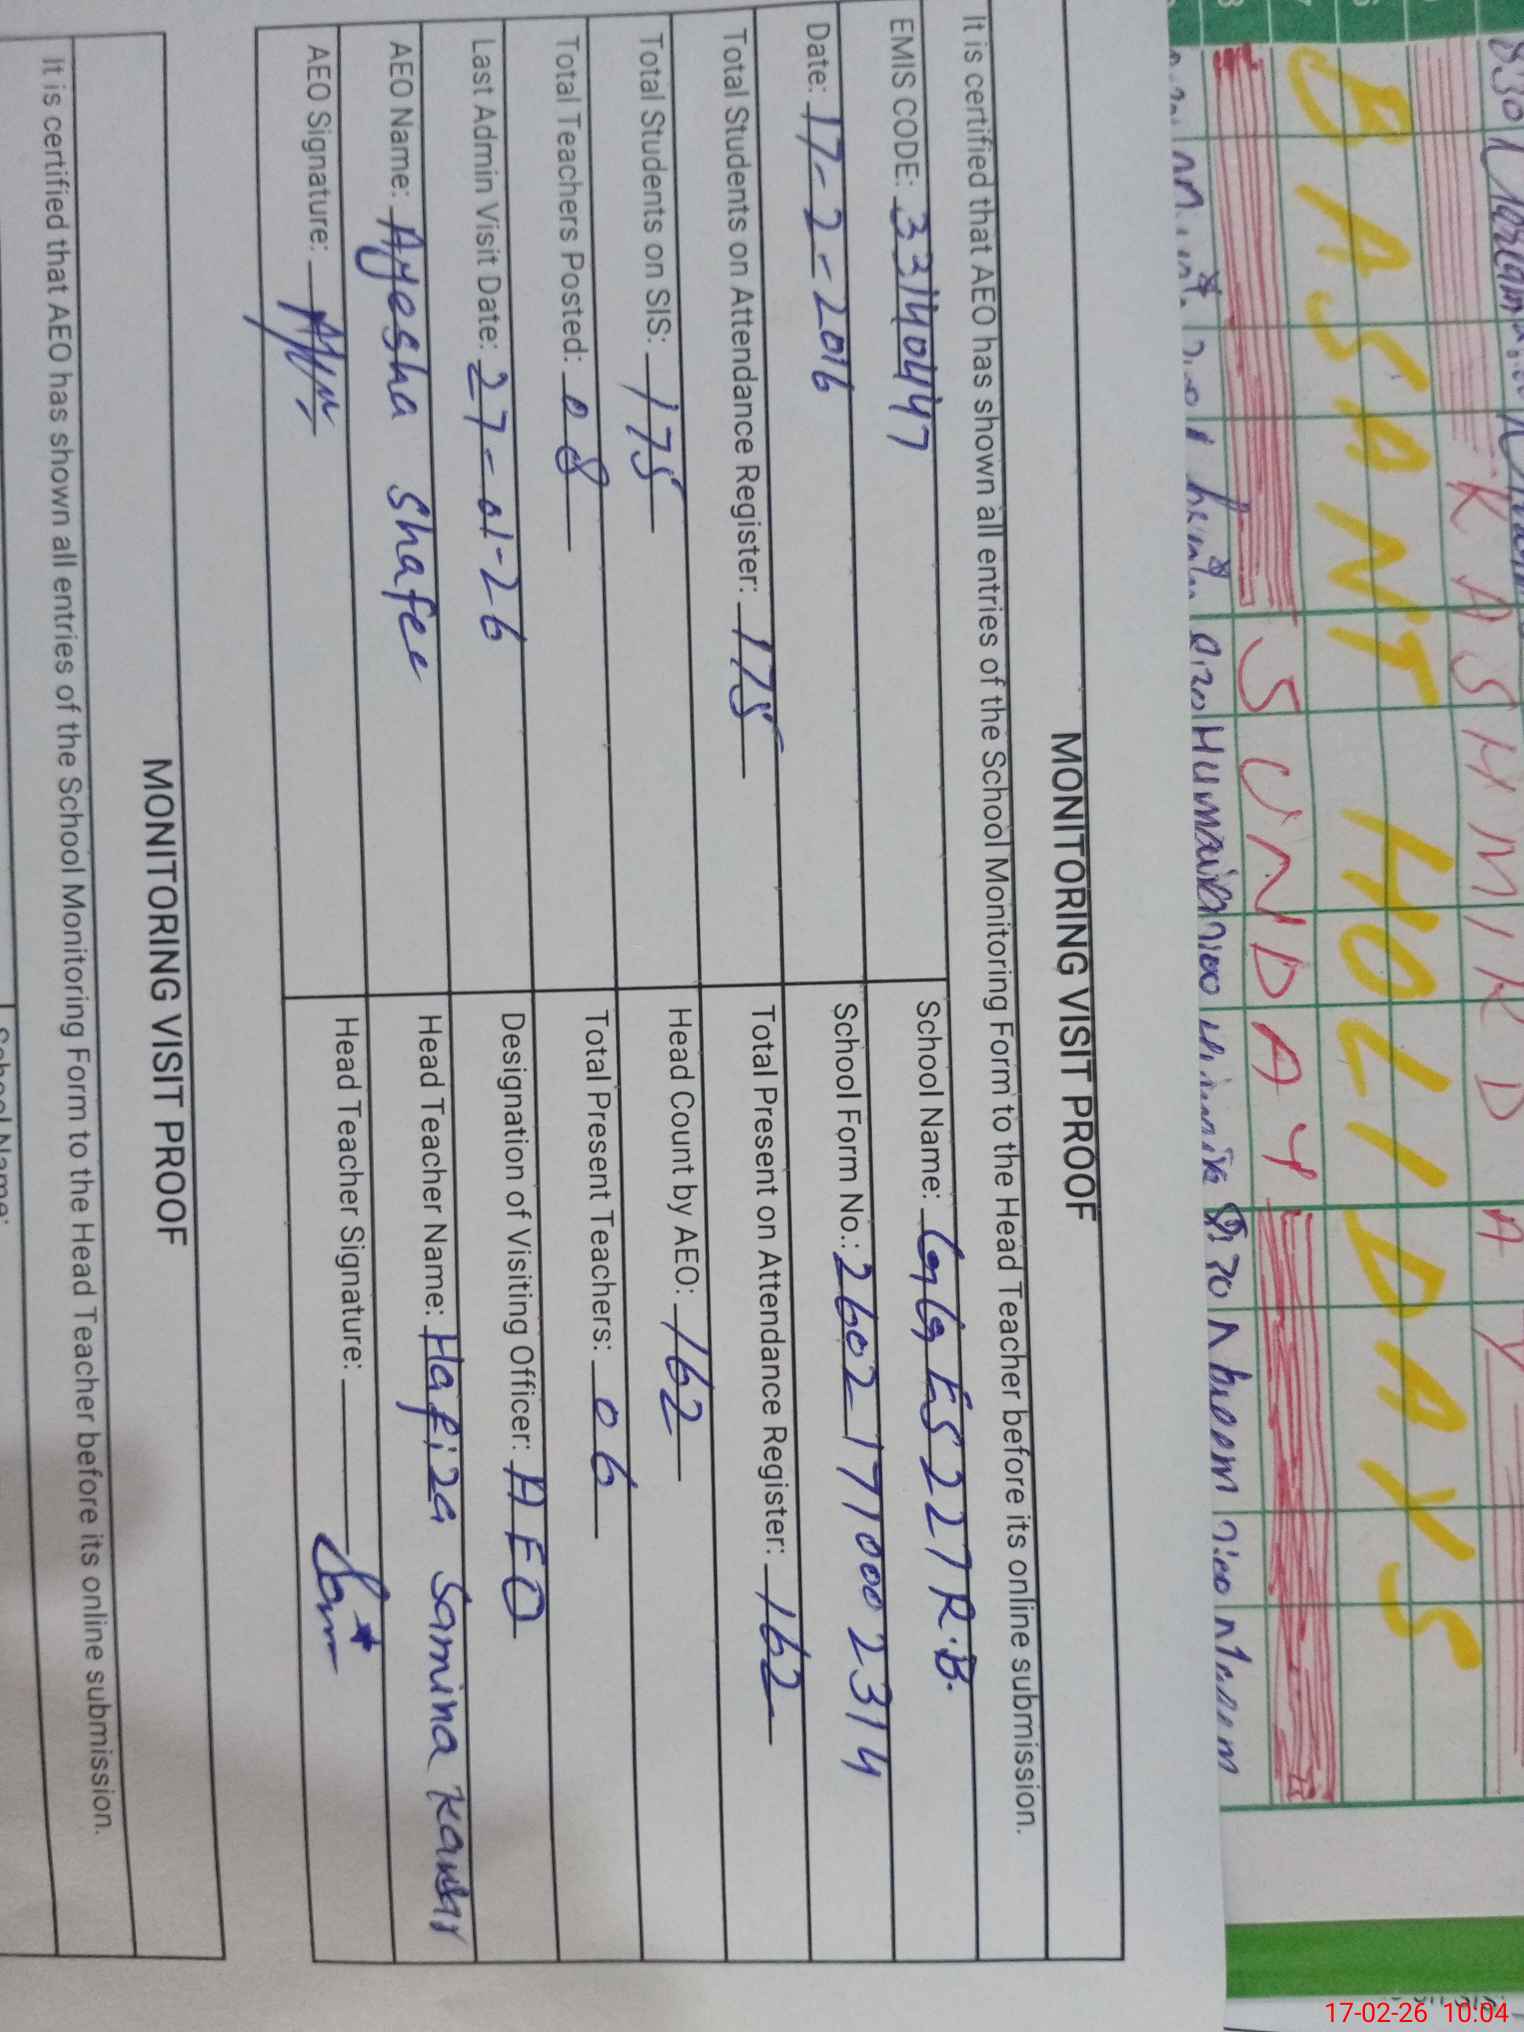 K A S H M I R D A Y
BASANT HOLIDAYS
SUNDAY
MONITORING VISIT PROOF
It is certified that AEO has shown all entries of the School Monitoring Form to the Head Teacher before its online submission.
EMIS CODE: 33140447 School Name: GGES 227 R.B.
Date: 17-2-2016 School Form No.: 2602171000 2314
Total Students on Attendance Register: 175 Total Present on Attendance Register: 162
Total Students on SIS: 175 Head Count by AEO: 162
Total Teachers Posted: 08 Total Present Teachers: 06
Last Admin Visit Date: 27-01-26 Designation of Visiting Officer: AEO
AEO Name: Ayesha Shafee Head Teacher Name: Hafiza Samina Kausar
AEO Signature: Head Teacher Signature:
MONITORING VISIT PROOF
It is certified that AEO has shown all entries of the School Monitoring Form to the Head Teacher before its online submission.
School Name:
17-02-26 10:04